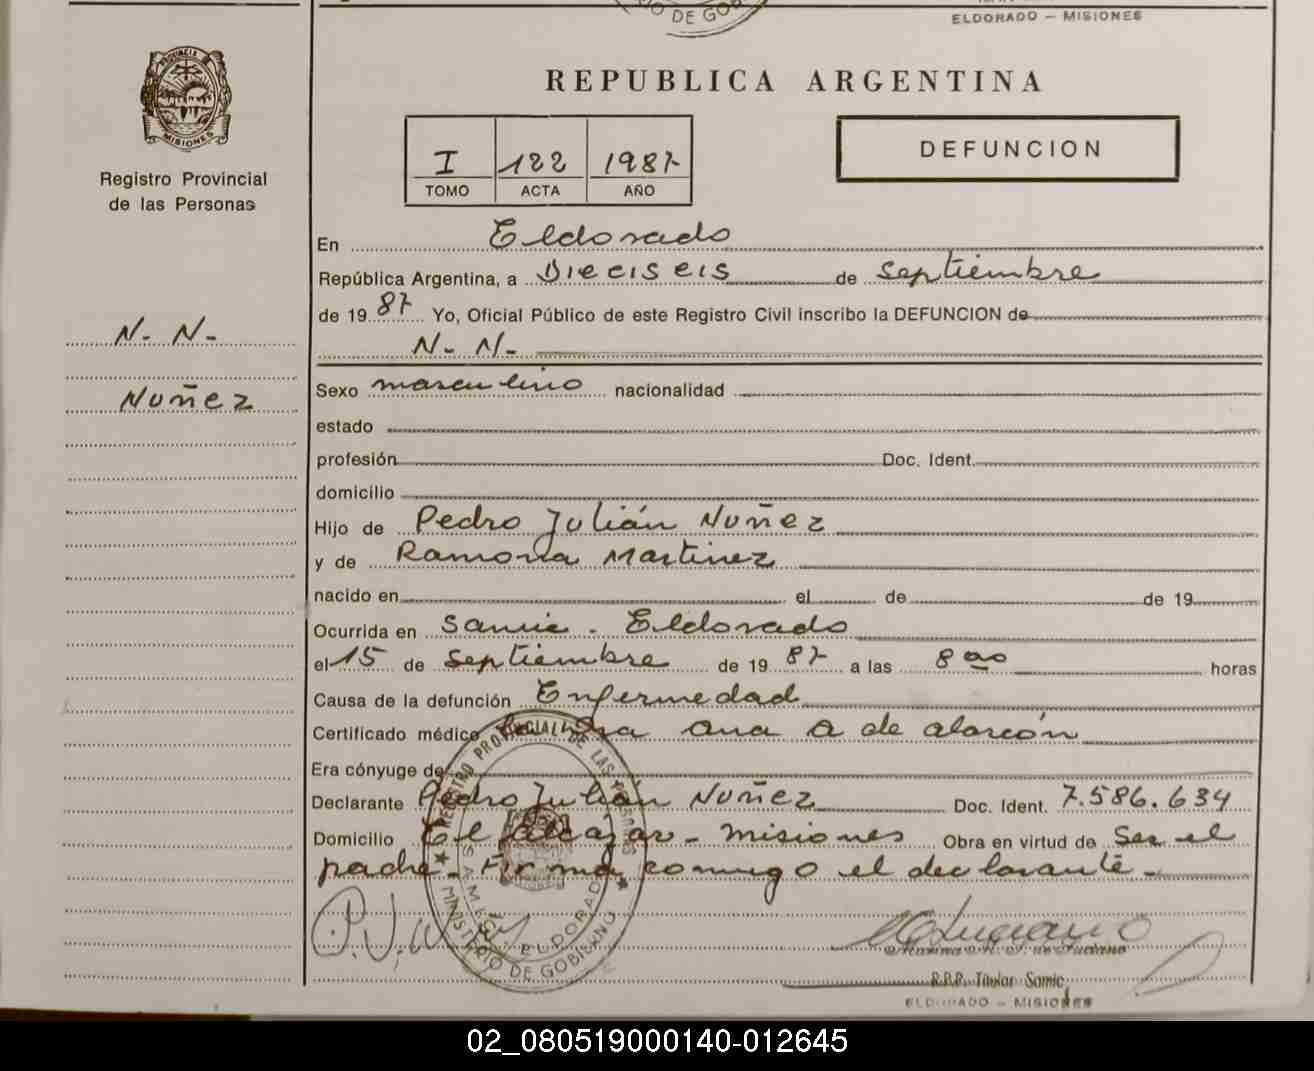 RIO DE GOB
ELDORADO — MISIONES
PROVINCIA
MISIONES
Registro Provincial
de las Personas
REPUBLICA ARGENTINA
I 122 1987
TOMO ACTA AÑO
DEFUNCION
N- N-
Nuñez
En Eldorado
República Argentina, a Dieciseis de septiembre
de 1987 Yo, Oficial Público de este Registro Civil inscribo la DEFUNCION de
N- N-
Sexo masculino nacionalidad
estado
profesión Doc. Ident.
domicilio
Hijo de Pedro Julián Nuñez
y de Ramona Martinez
nacido en el de de 19
Ocurrida en Samic. Eldorado
el 15 de septiembre de 1987 a las 8 00 horas
Causa de la defunción Enfermedad
Certificado médico Dra Ana A de Alarcón
Era cónyuge de
Declarante Pedro Julián Nuñez Doc. Ident. 7.586.634
Domicilio El Alcázar - Misiones Obra en virtud de Ser el
padre. Firma conmigo el declarante -
REGISTRO PROVINCIAL DE LAS PERSONAS
SAMIC ELDORADO
MINISTERIO DE GOBIERNO
P.J.
Luciano
de Luciano
R.P.P. Titular Samic
ELDORADO — MISIONES
02_080519000140-012645